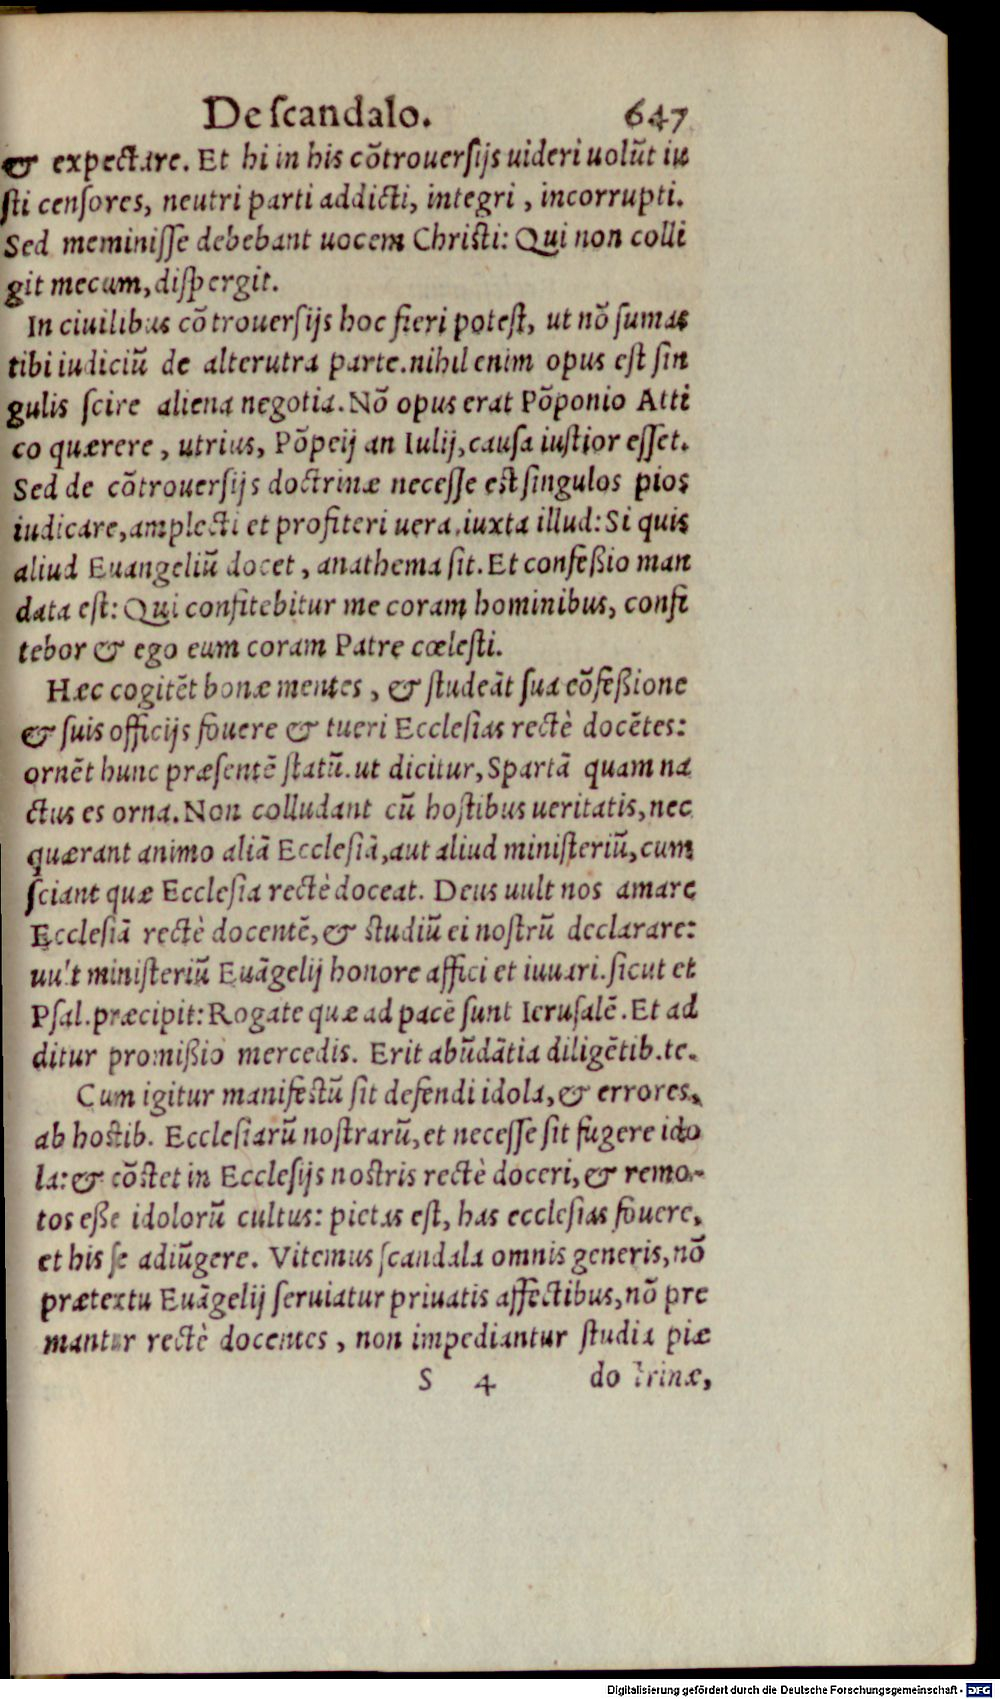 De ſcandalo. 647
& expectare. Et hi in his cõtrouerſijs uideri uolũt iu
ſti cenſores, neutri parti addicti, integri, incorrupti.
Sed meminiſſe debebant uocem Chriſti: Qui non colli
git mecum, diſpergit.
In ciuilibus cõtrouerſijs hoc fieri poteſt, ut nõ ſumas
tibi iudiciũ de alterutra parte. nihil enim opus eſt ſin
gulis ſcire aliena negotia. Nõ opus erat Põponio Atti
co quærere, utrius, Põpeij an Iulij, cauſa iuſtior eſſet.
Sed de cõtrouerſijs doctrinæ neceſſe eſt ſingulos pios
iudicare, amplecti et profiteri uera, iuxta illud: Si quis
aliud Euangeliũ docet, anathema ſit. Et confeßio man
data eſt: Qui confitebitur me coram hominibus, confi
tebor & ego eum coram Patre cœleſti.
Hæc cogitẽt bonæ mentes, & ſtudeãt ſua cõfeßione
& ſuis officijs fouere & tueri Eccleſias rectè docẽtes:
ornẽt hunc præſentẽ ſtatũ. ut dicitur, Spartã quam na
ctus es orna. Non colludant cũ hoſtibus ueritatis, nec
quærant animo aliã Eccleſiã, aut aliud miniſteriũ, cum
ſciant quæ Eccleſia rectè doceat. Deus uult nos amare
Eccleſiã rectè docentẽ, & ſtudiũ ei noſtrũ declarare:
uult miniſteriũ Euãgelij honore affici et iuuari. ſicut et
Pſal. præcipit: Rogate quæ ad pacẽ ſunt Ieruſalẽ. Et ad
ditur promißio mercedis. Erit abũdãtia diligẽtib. te.
Cum igitur manifeſtũ ſit defendi idola, & errores,
ab hoſtib. Eccleſiarũ noſtrarũ, et neceſſe ſit fugere ido
la: & cõſtet in Eccleſijs noſtris rectè doceri, & remo-
tos eße idolorũ cultus: pietas eſt, has eccleſias fouere,
et his ſe adiũgere. Vitemus ſcandala omnis generis, nõ
prætextu Euãgelij ſeruiatur priuatis affectibus, nõ pre
mantur rectè docentes, non impediantur ſtudia piæ
S 4 doctrinæ,
Digitalisierung gefördert durch die Deutsche Forschungsgemeinschaft - DFG